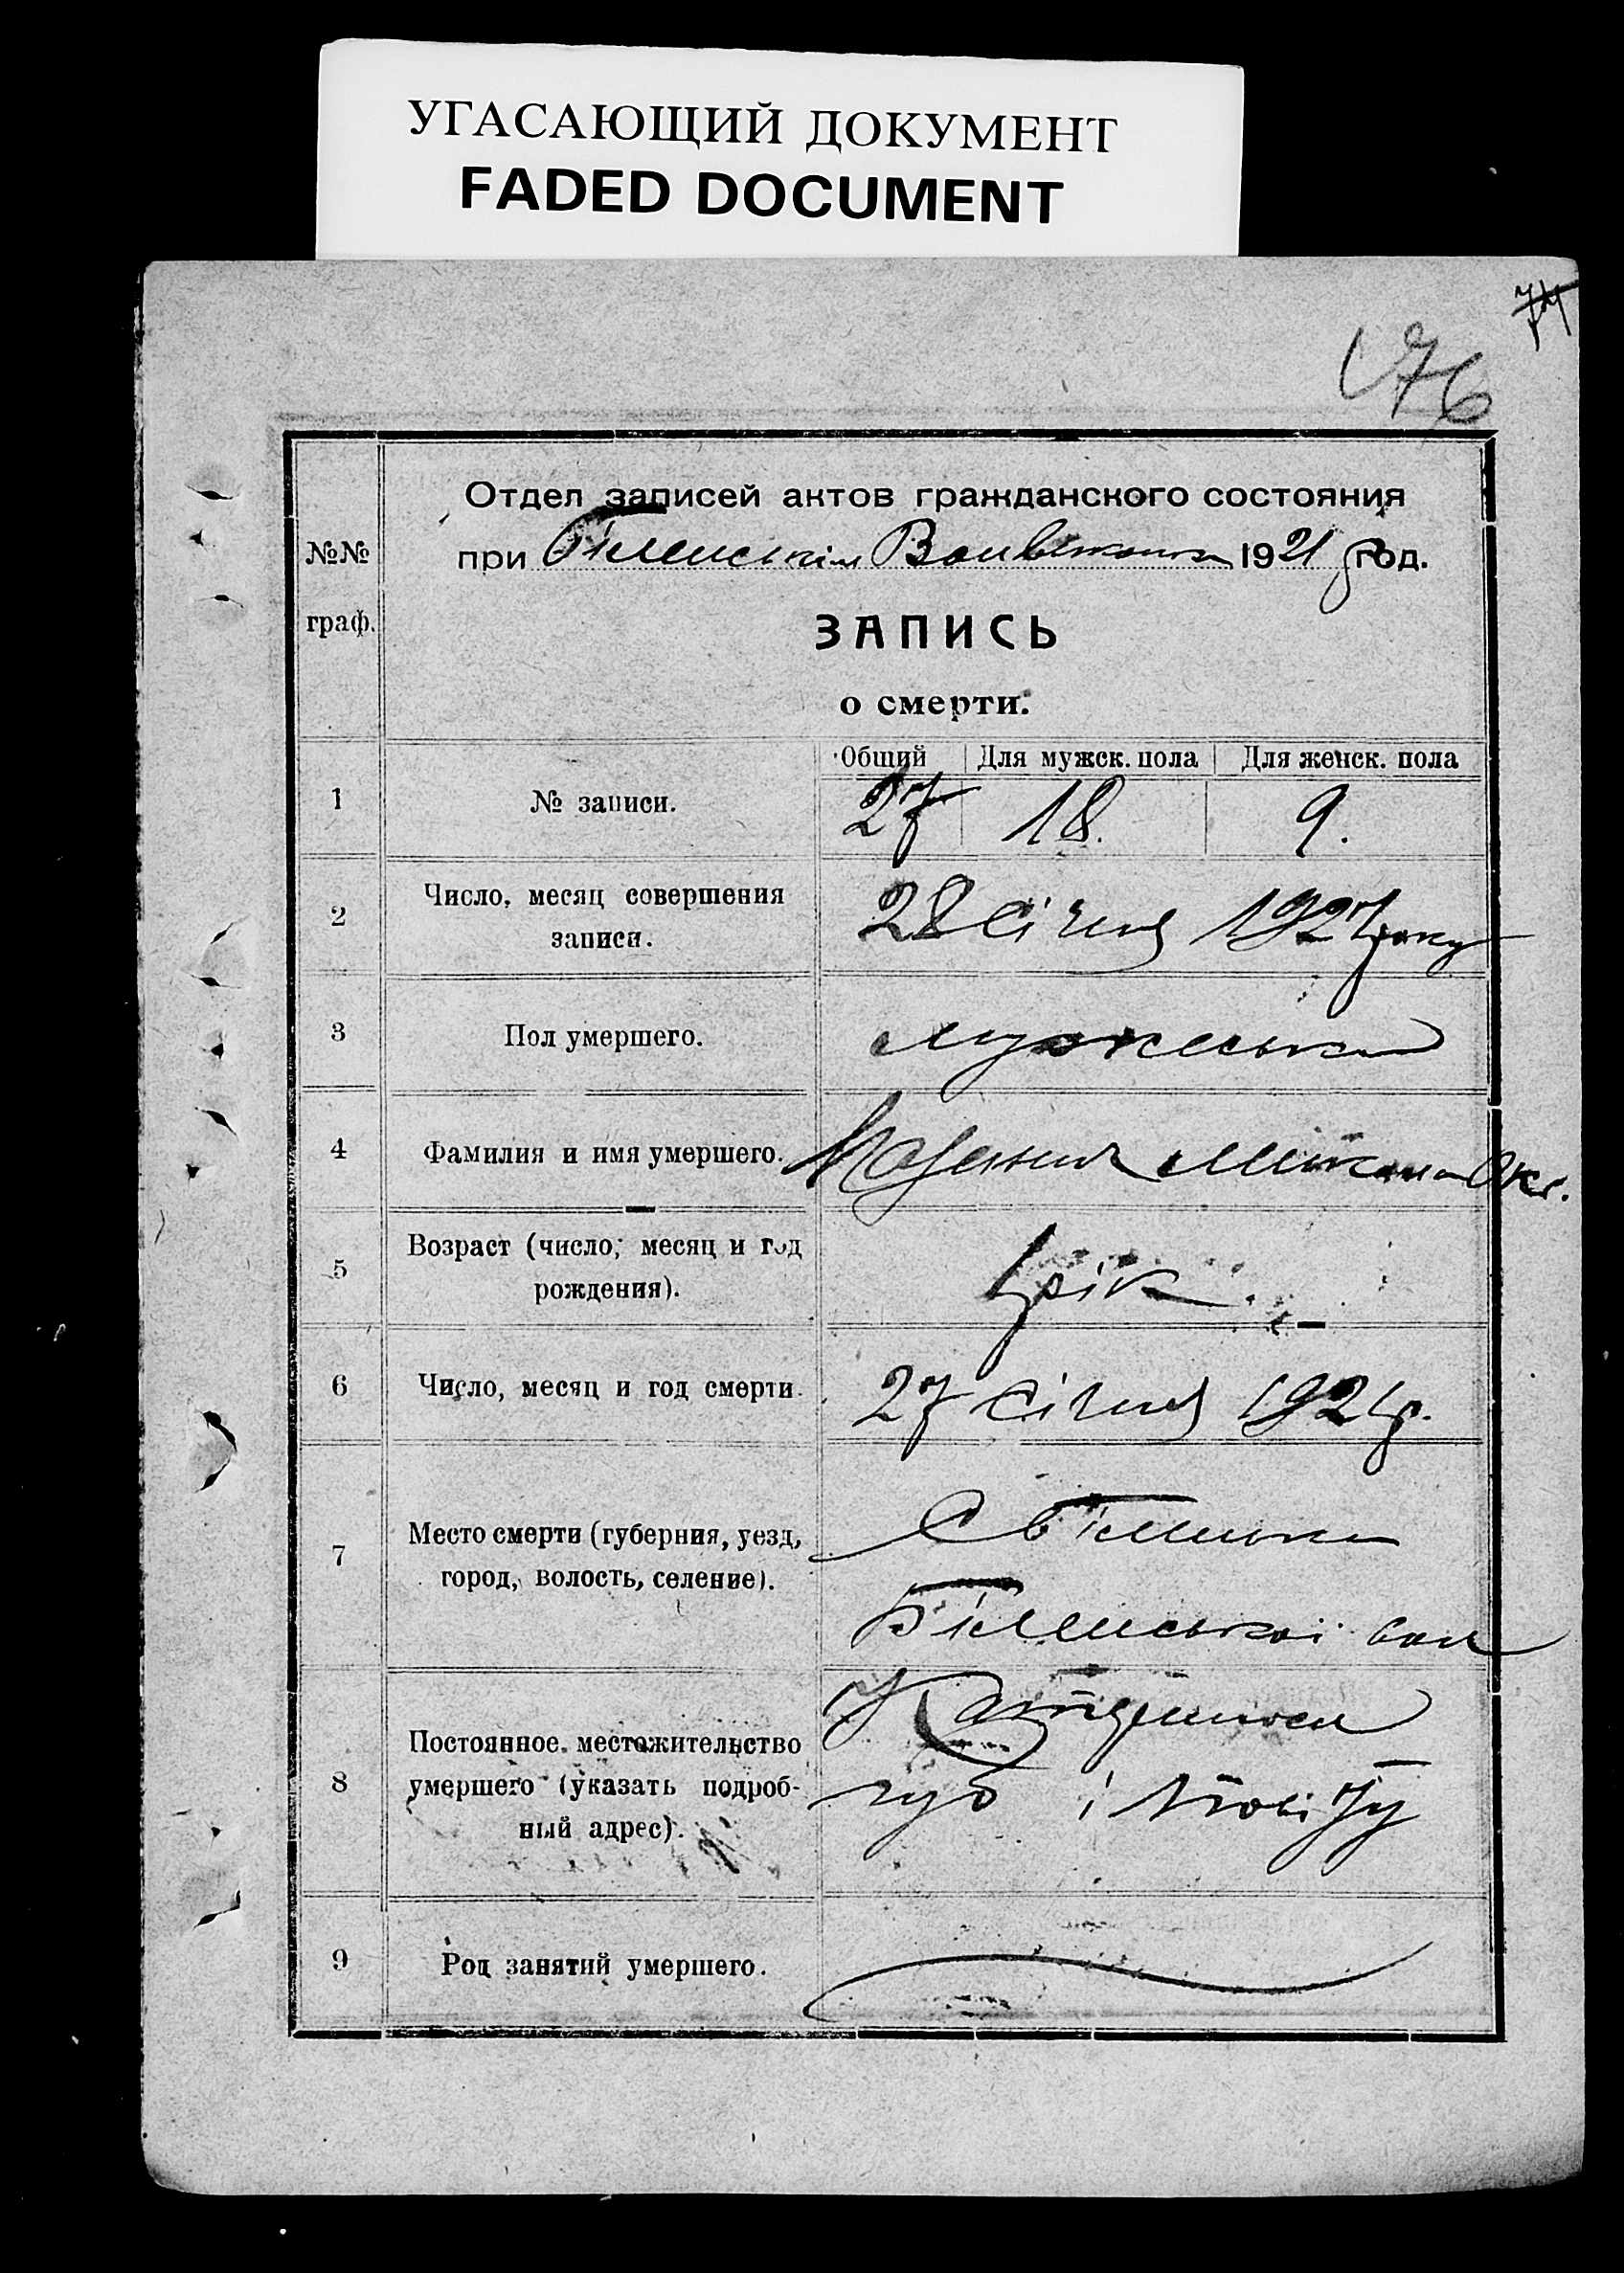 УГАСАЮЩИЙ ДОКУМЕНТ
FADED DOCUMENT
74
76
Отдел записей актов гражданского состояния
№№ граф.
при Біленськім 1921 год.
ЗАПИСЬ
о смерти.
Общий Для мужск. пола Для женск. пола
1 № записи. 27 18. 9.
2 Число, месяц совершения записи. 28 січня 1921 року
3 Пол умершего. мужеська
4 Фамилия и имя умершего.
5 Возраст (число, месяц и год рождения). 1 рік.
6 Число, месяц и год смерти. 27 січня 1921 р.
7 Место смерти (губерния, уезд, город, волость, селение). С Біленьке
Біленської вол
8 Постоянное местожительство умершего (указать подробный адрес).
губ і повіту
9 Род занятий умершего.